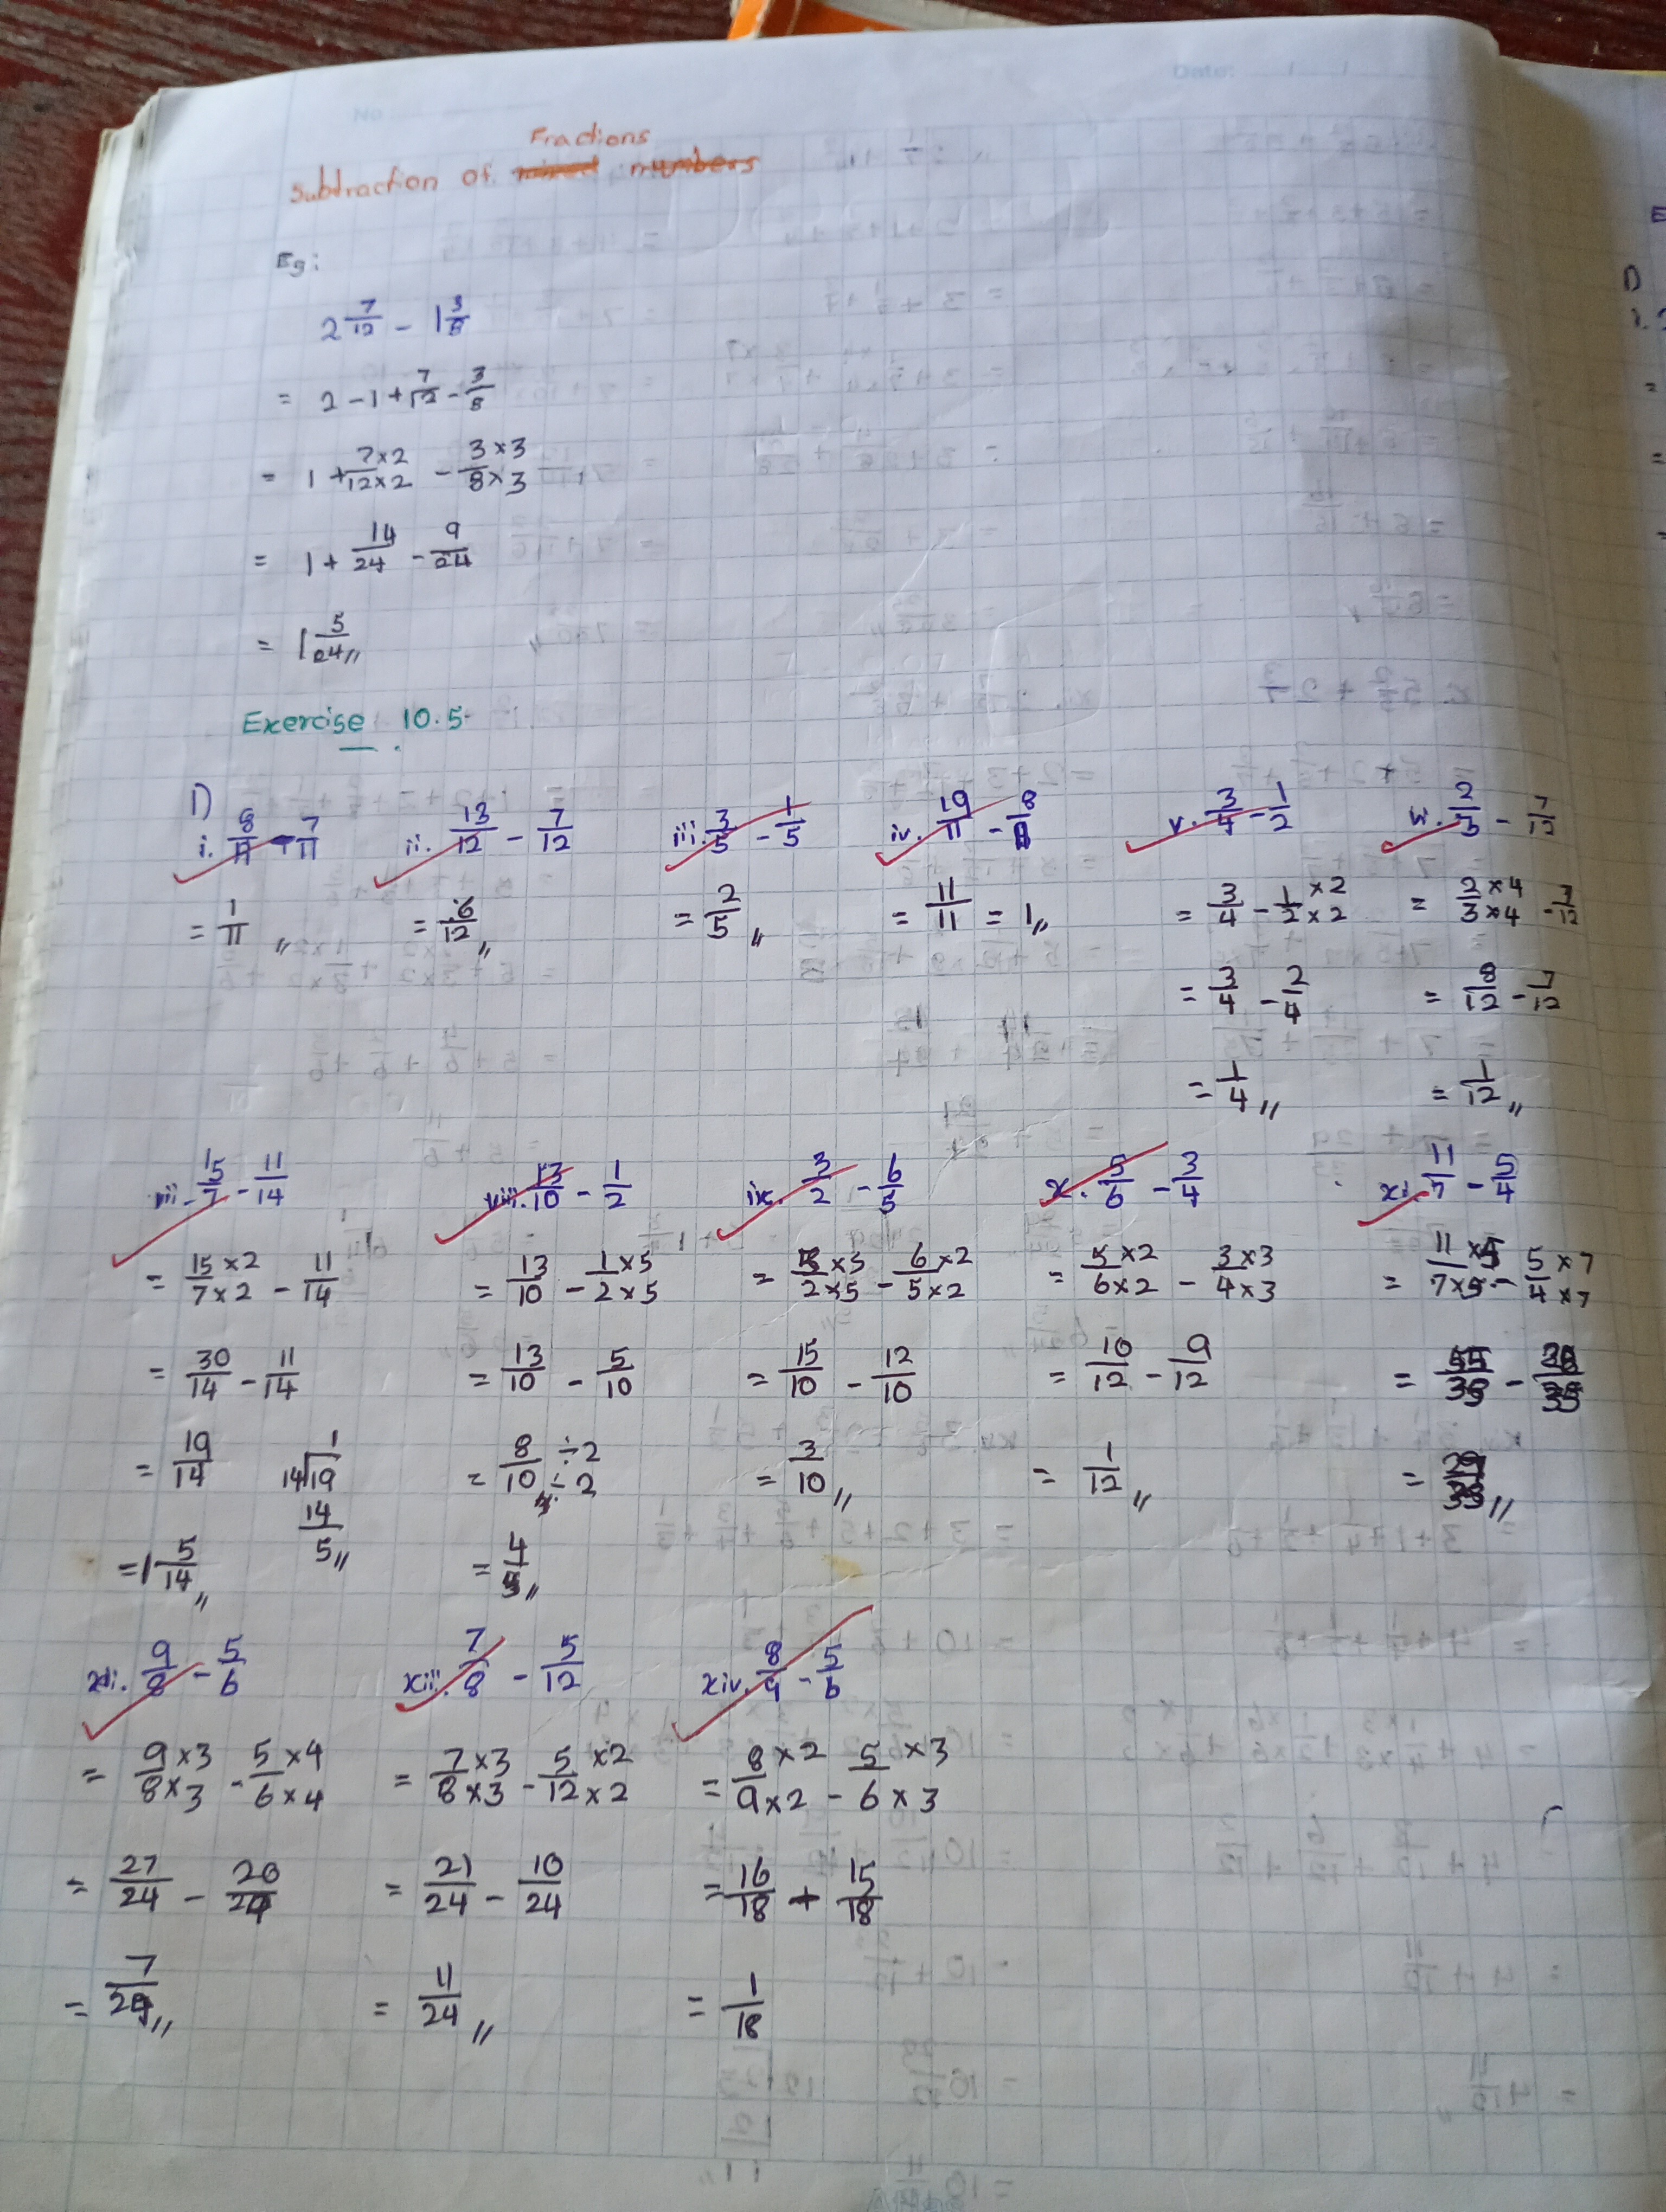 No
Date:
Fractions
Subtraction of mixed numbers
Eg:
2 7/12 - 1 3/8
= 2 - 1 + 7/12 - 3/8
= 1 + 7×2/12×2 - 3×3/8×3
= 1 + 14/24 - 9/24
= 1 5/24 //
Exercise 10.5
1)
i. 8/11 - 7/11
= 1/11 //
ii. 13/12 - 7/12
= 6/12 //
iii. 3/5 - 1/5
= 2/5 //
iv. 19/11 - 8/11
= 11/11 = 1 //
v. 3/4 - 1/2
= 3/4 - 1×2/2×2
= 3/4 - 2/4
= 1/4 //
vi. 2/3 - 7/12
= 2×4/3×4 - 7/12
= 8/12 - 7/12
= 1/12 //
vii. 15/7 - 11/14
= 15×2/7×2 - 11/14
= 30/14 - 11/14
= 19/14
1
14 19
14
5 //
= 1 5/14 //
viii. 13/10 - 1/2
= 13/10 - 1×5/2×5
= 13/10 - 5/10
= 8÷2/10÷2
= 4/5 //
ix. 3/2 - 6/5
= 3×5/2×5 - 6×2/5×2
= 15/10 - 12/10
= 3/10 //
x. 5/6 - 3/4
= 5×2/6×2 - 3×3/4×3
= 10/12 - 9/12
= 1/12 //
xi. 11/7 - 5/4
xii. 9/8 - 5/6
= 9×3/8×3 - 5×4/6×4
= 27/24 - 20/24
= 7/24 //
xiii. 7/8 - 5/12
= 7×3/8×3 - 5×2/12×2
= 21/24 - 10/24
= 11/24 //
xiv. 8/9 - 5/6
= 8×2/9×2 - 5×3/6×3
= 16/18 - 15/18
= 1/18